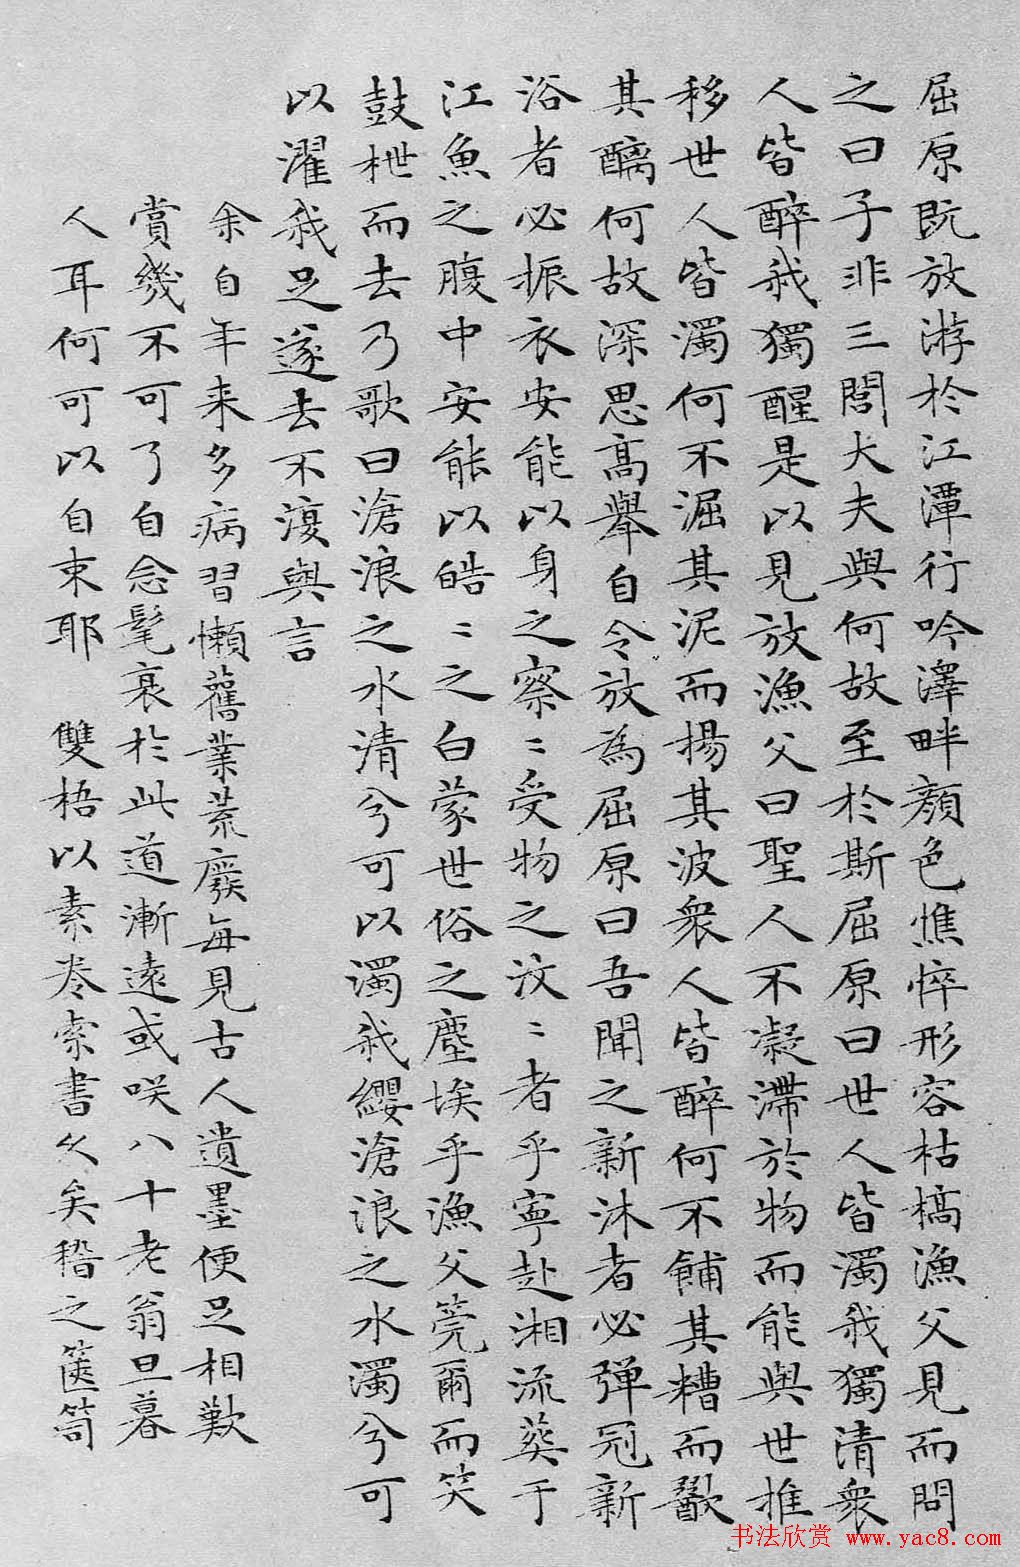 屈原既放游於江潭行吟澤畔顔色憔悴形容枯槁漁父見而問
之曰子非三閭大夫與何故至於斯屈原曰世人皆濁我獨清衆
人皆醉我獨醒是以見放漁父曰聖人不凝滯於物而能與世推
移世人皆濁何不淈其泥而揚其波衆人皆醉何不餔其糟而歠
其醨何故深思高舉自令放為屈原曰吾聞之新沐者必彈冠新
浴者必振衣安能以身之察〻受物之汶〻者乎寧赴湘流葬于
江魚之腹中安能以皓〻之白蒙世俗之塵埃乎漁父莞爾而笑
鼓枻而去乃歌曰滄浪之水清兮可以濯我纓滄浪之水濁兮可
以濯我足遂去不復與言
余自年来多病習懶舊業荒廢每見古人遺墨便足相歎
賞幾不可了自念髦衰於此道漸遠或咲八十老翁旦暮
人耳何可以自束耶 雙梧以素卷索書久矣稽之篋笥
书法欣赏 www.yac8.com